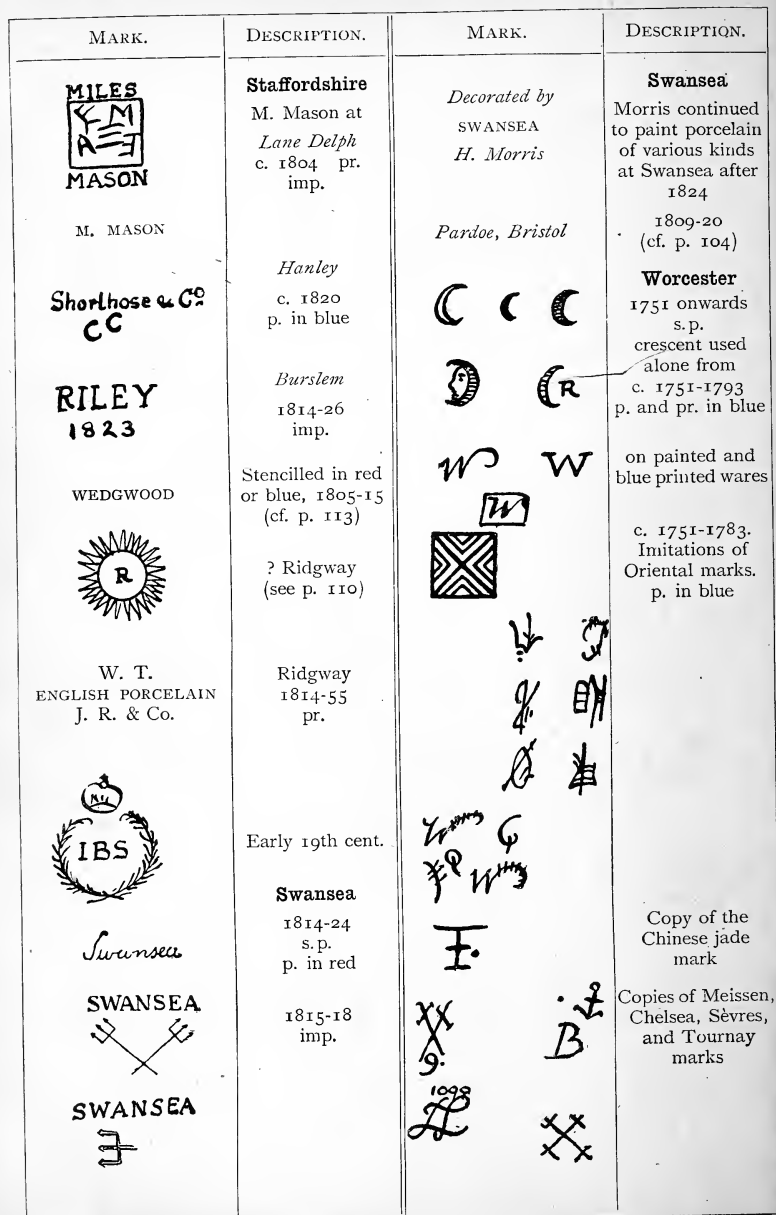 MARK.
DESCRIPTION.
MILES
MASON
Staffordshire
M. Mason at
Lane Delph
c. 1804 pr.
imp.
M. MASON
Shorthose & Co
CC
Hanley
c. 1820
p. in blue
RILEY
1823
Burslem
1814-26
imp.
WEDGWOOD
Stencilled in red
or blue, 1805-15
(cf. p. 113)
R
? Ridgway
(see p. 110)
W. T.
ENGLISH PORCELAIN
J. R. & Co.
Ridgway
1814-55
pr.
IBS
Early 19th cent.
Swansea
Swansea
1814-24
s.p.
p. in red
SWANSEA
1815-18
imp.
SWANSEA
MARK.
DESCRIPTION.
Decorated by
SWANSEA
H. Morris
Swansea
Morris continued
to paint porcelain
of various kinds
at Swansea after
1824
Pardoe, Bristol
1809-20
(cf. p. 104)
Worcester
1751 onwards
s.p.
crescent used
alone from
c. 1751-1793
p. and pr. in blue
R
W W
W
on painted and
blue printed wares
c. 1751-1783.
Imitations of
Oriental marks.
p. in blue
Copy of the
Chinese jade
mark
9.
B
Copies of Meissen,
Chelsea, Sèvres,
and Tournay
marks